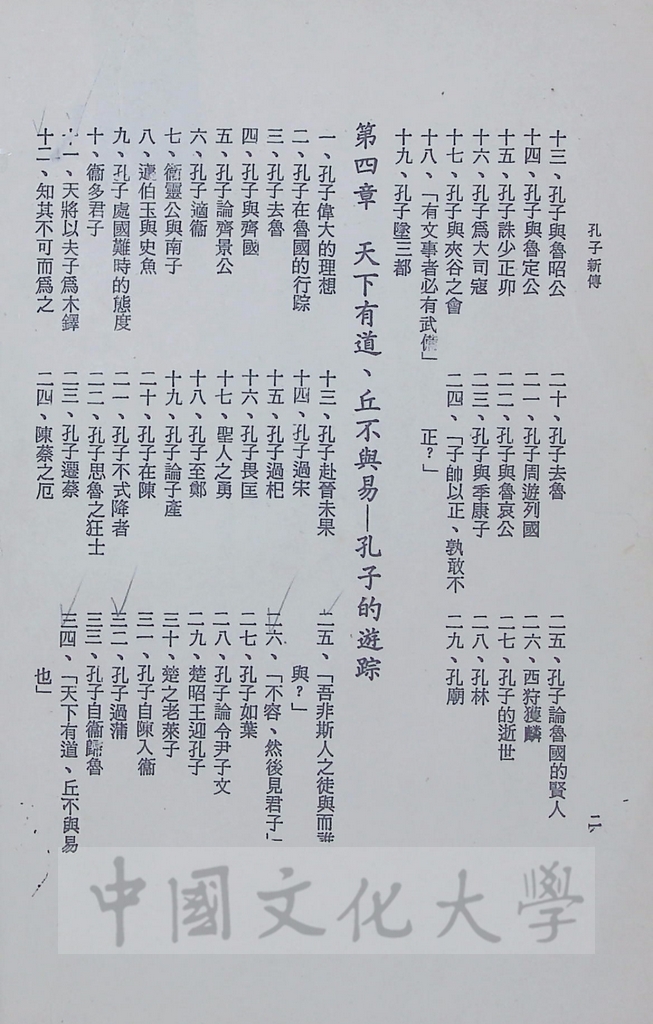 孔子新傳
二
十三、孔子與魯昭公
十四、孔子與魯定公
十五、孔子誅少正卯
十六、孔子爲大司寇
十七、孔子與夾谷之會
十八、「有文事者必有武備」
十九、孔子墮三都
二十、孔子去魯
二一、孔子周遊列國
二二、孔子與魯哀公
二三、孔子與季康子
二四、「子帥以正、孰敢不
正?」
二五、孔子論魯國的賢人
二六、西狩獲麟
二七、孔子的逝世
二八、孔林
二九、孔廟
第四章 天下有道、丘不與易—孔子的遊踪
一、孔子偉大的理想
二、孔子在魯國的行踪
三、孔子去魯
四、孔子與齊國
五、孔子論齊景公
六、孔子適衞
七、衞靈公與南子
八、蘧伯玉與史魚
九、孔子處國難時的態度
十、衞多君子
十一、天將以夫子爲木鐸
十二、知其不可而爲之
十三、孔子赴晉未果
十四、孔子過宋
十五、孔子過杞
十六、孔子畏匡
十七、聖人之勇
十八、孔子至鄭
十九、孔子論子產
二十、孔子在陳
二一、孔子不式降者
二二、孔子思魯之狂士
二三、孔子遷蔡
二四、陳蔡之厄
二五、「吾非斯人之徒與而誰
與?」
二六、「不容、然後見君子」
二七、孔子如葉
二八、孔子論令尹子文
二九、楚昭王迎孔子
三十、楚之老萊子
三一、孔子自陳入衞
三二、孔子過蒲
三三、孔子自衞歸魯
三四、「天下有道、丘不與易
也」
中國文化大學